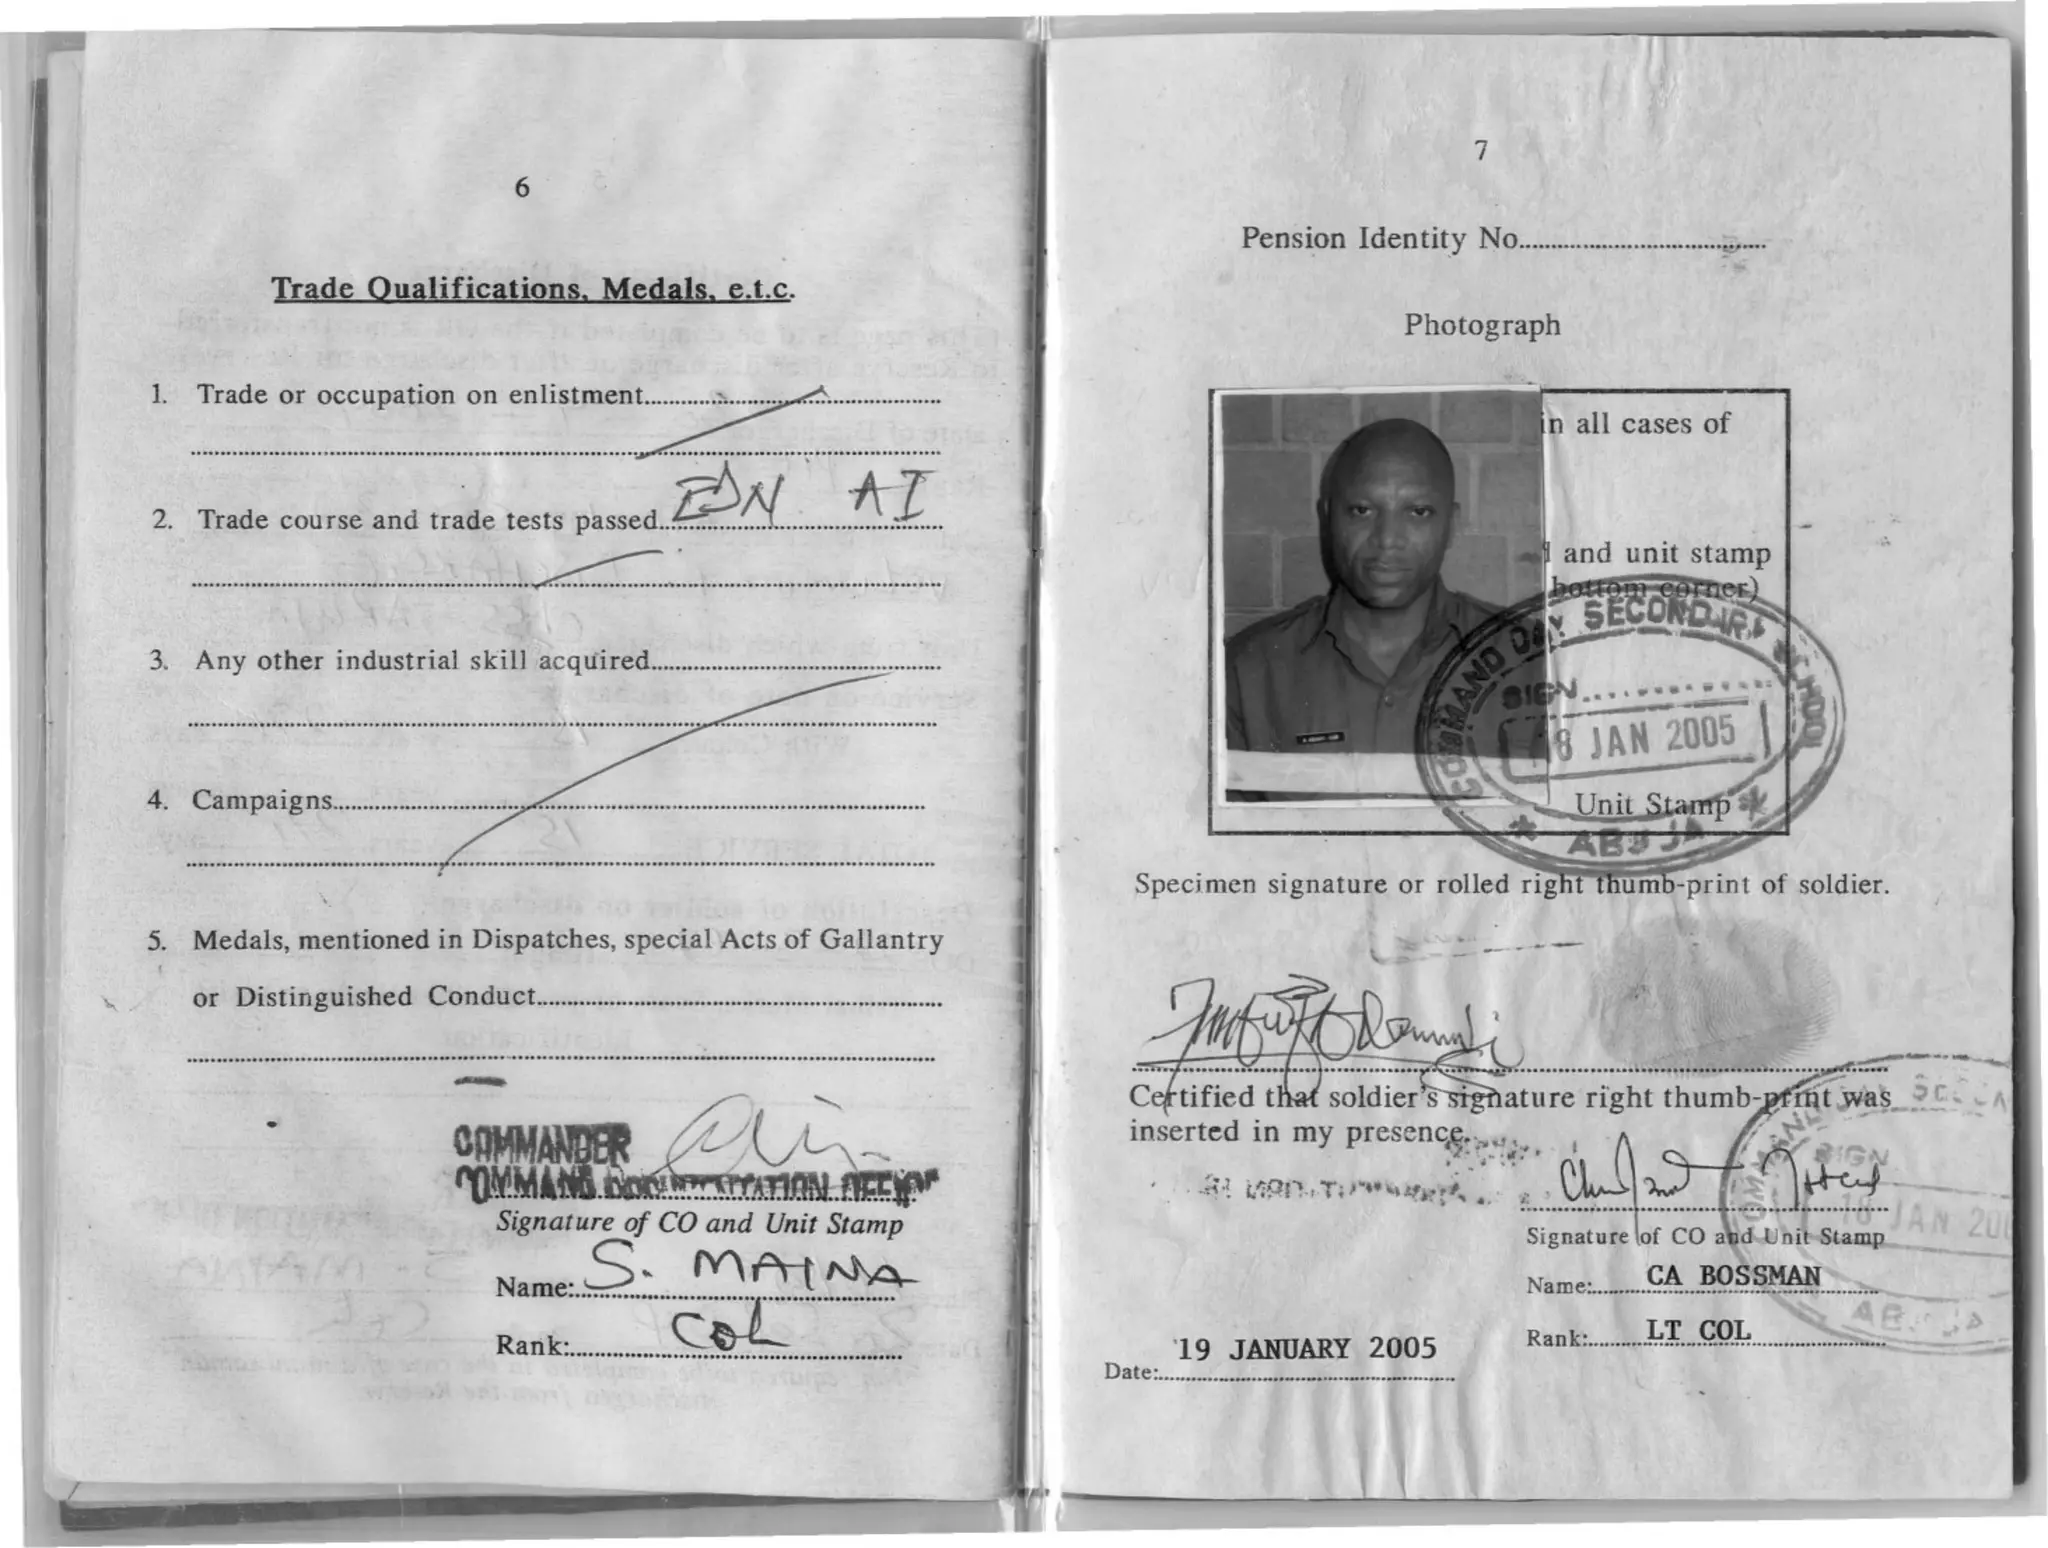 6
Trade Qualifications, Medals, e.t.c.
1. Trade or occupation on enlistment
2. Trade course and trade tests passed EDN AI
3. Any other industrial skill acquired
4. Campaigns
5. Medals, mentioned in Dispatches, special Acts of Gallantry
or Distinguished Conduct
COMMANDER
COMMAND
Signature of CO and Unit Stamp
Name: S. MAINA
Rank: COL
7
Pension Identity No
Photograph
in all cases of
and unit stamp
bottom corner)
COMMAND DAY SECONDARY SCHOOL
SIGN
18 JAN 2005
Unit Stamp
* ABUJA *
Specimen signature or rolled right thumb-print of soldier.
Certified that soldier's signature right thumb-print was
inserted in my presence.
SIGN
18 JAN 200
ABUJA
Signature of CO and Unit Stamp
Name: CA BOSSMAN
Rank: LT COL
Date: 19 JANUARY 2005